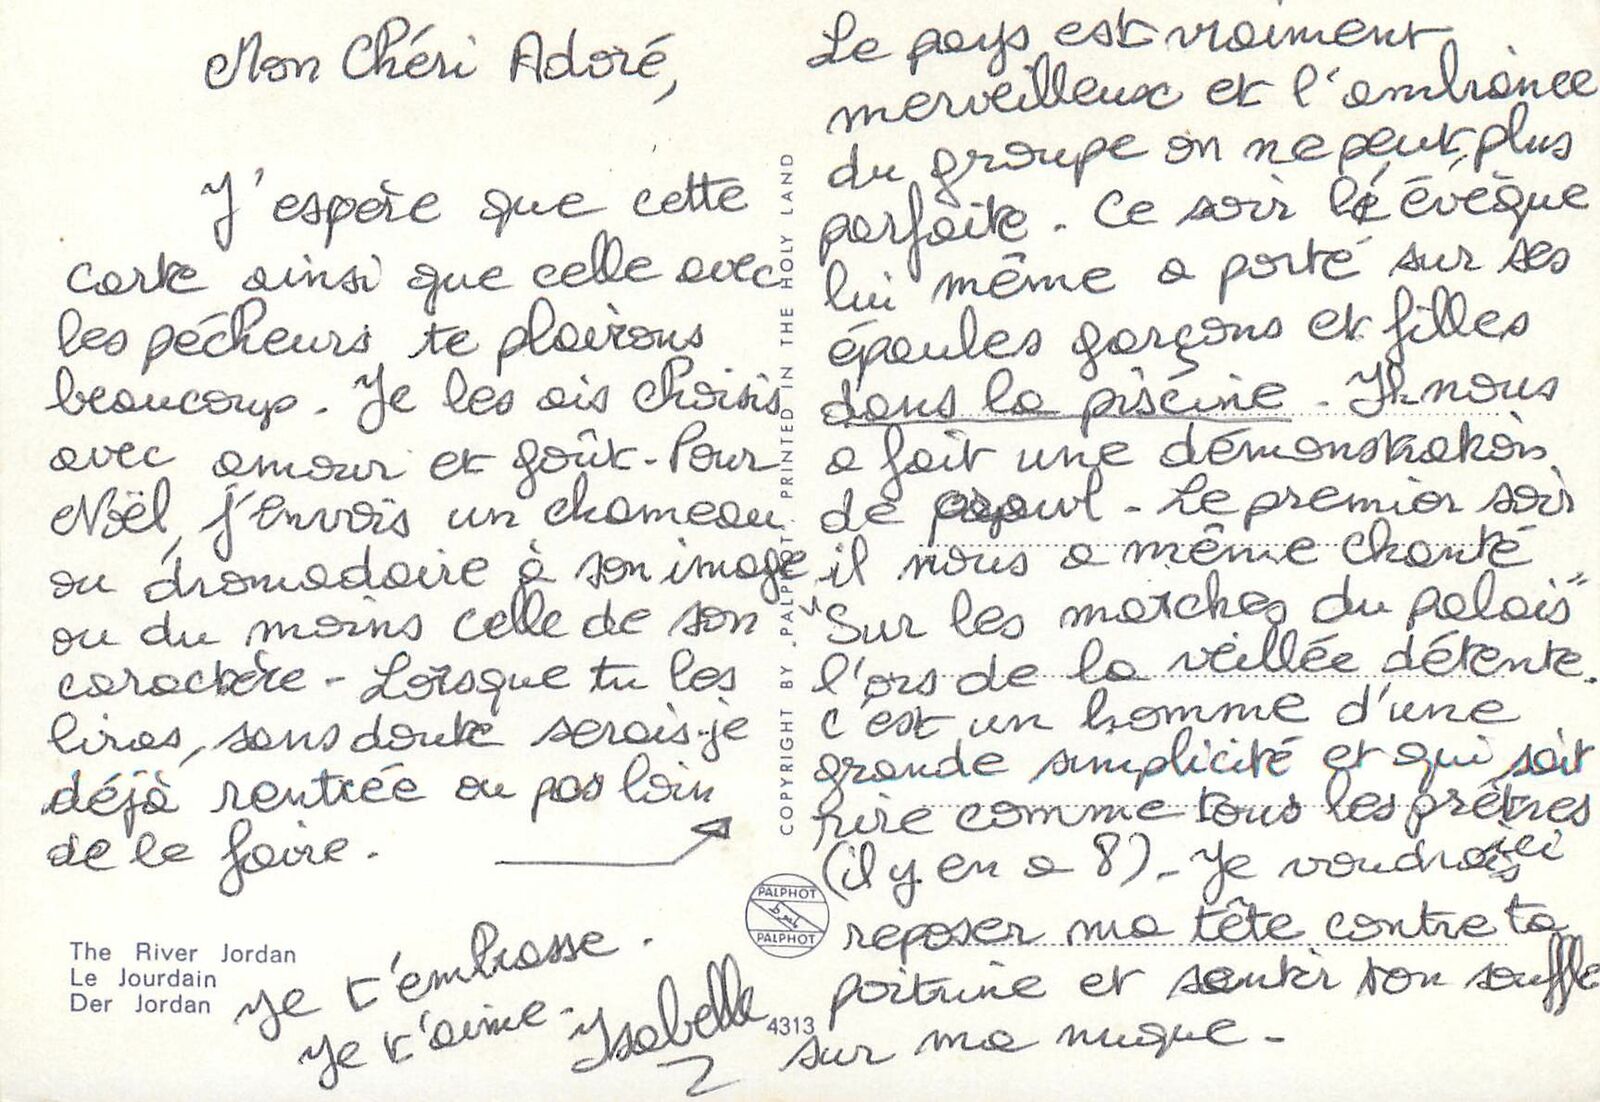 Mon Chéri Adoré,
J'espère que cette
carte ainsi que celle avec
les pécheurs te plairons
beaucoup. Je les ais choisis
avec amour et goût. Pour
Noël, j'envois un chameau
ou dromadaire à son image
ou du moins celle de son
caractère - Lorsque tu les
liras, sans doute serais-je
déjà rentrée ou pas loin
de le faire.
Le pays est vraiment
merveilleux et l'ambiance
du groupe on ne peut plus
parfaite. Ce soir l'évêque
lui même a porté sur ses
épaules garçons et filles
dans la piscine. Il nous
a fait une démonstration
de crawl - Le premier soir
il nous a même chanté
"Sur les marches du palais"
l'ors de la veillée détente.
c'est un homme d'une
grande simplicité et qui sait
rire comme tous les prêtres ici
(il y en a 8) - Je voudrais
reposer ma tête contre ta
poitrine et sentir ton souffle
sur ma nuque -
Je t'embrasse.
Je t'aime.
Isabelle
The River Jordan
Le Jourdain
Der Jordan
COPYRIGHT BY PALPHOT PRINTED IN THE HOLY LAND
PALPHOT
PALPHOT
4313